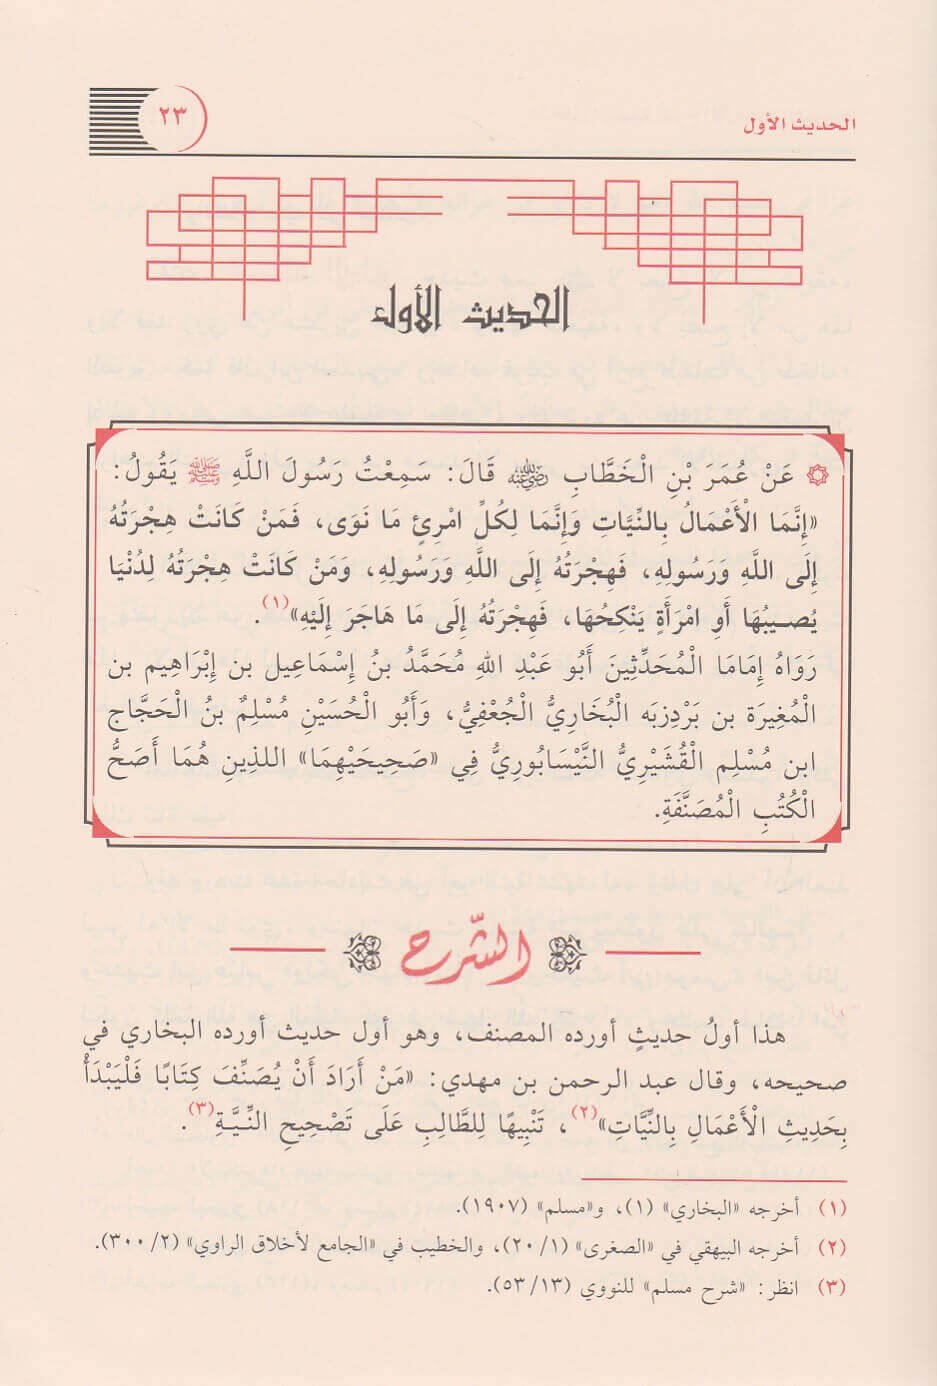 الحديث الأول
٢٣
الحديث الأول
عَنْ عُمَرَ بْنِ الْخَطَّابِ ﵁ قَالَ: سَمِعْتُ رَسُولَ اللَّهِ ﷺ يَقُولُ:
«إِنَّمَا الْأَعْمَالُ بِالنِّيَّاتِ وَإِنَّمَا لِكُلِّ امْرِئٍ مَا نَوَى، فَمَنْ كَانَتْ هِجْرَتُهُ
إِلَى اللَّهِ وَرَسُولِهِ، فَهِجْرَتُهُ إِلَى اللَّهِ وَرَسُولِهِ، وَمَنْ كَانَتْ هِجْرَتُهُ لِدُنْيَا
يُصِيبُهَا أَوِ امْرَأَةٍ يَنْكِحُهَا، فَهِجْرَتُهُ إِلَى مَا هَاجَرَ إِلَيْهِ»(١).
رَوَاهُ إِمَامَا الْمُحَدِّثِينَ أَبُو عَبْدِ اللهِ مُحَمَّدُ بنُ إِسْمَاعِيل بن إِبْرَاهِيم بن
الْمُغِيرَة بن بَرْدِزبَه الْبُخَارِيُّ الْجُعْفِيُّ، وَأَبُو الْحُسَيْنِ مُسْلِمٌ بنُ الْحَجَّاج
ابن مُسْلِم الْقُشَيْرِيُّ النَّيْسَابُورِيُّ فِي «صَحِيحَيْهِمَا» اللذِينِ هُمَا أَصَحُّ
الْكُتُبِ الْمُصَنَّفَةِ.
الشرح
هذا أولُ حديثٍ أورده المصنف، وهو أول حديث أورده البخاري في
صحيحه، وقال عبد الرحمن بن مهدي: «مَنْ أَرَادَ أَنْ يُصَنِّفَ كِتَابًا فَلْيَبْدَأْ
بِحَدِيثِ الْأَعْمَالِ بِالنِّيَّاتِ»(٢)، تَنْبِيهًا لِلطَّالِبِ عَلَى تَصْحِيحِ النِّيَّةِ(٣).
(١) أخرجه «البخاري» (١)، و«مسلم» (١٩٠٧).
(٢) أخرجه البيهقي في «الصغرى» (٢٠/١)، والخطيب في «الجامع لأخلاق الراوي» (٣٠٠/٢).
(٣) انظر: «شرح مسلم» للنووي (٥٣/١٣).